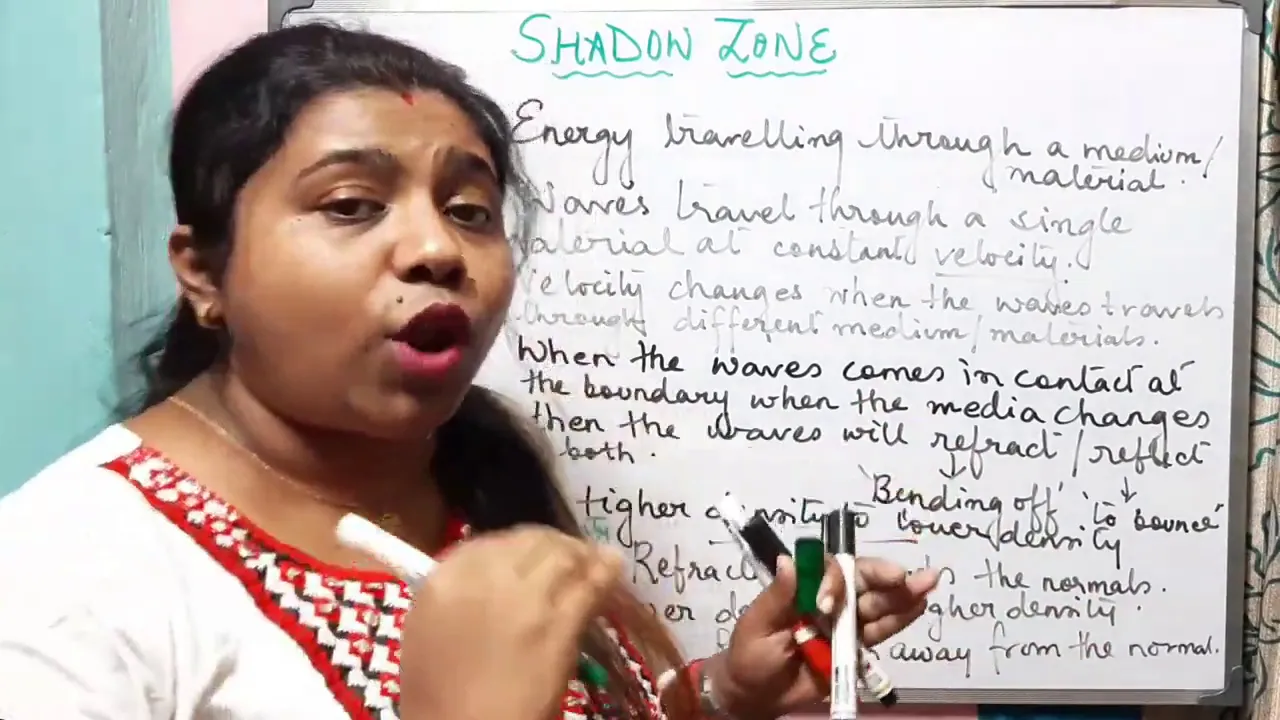 SHADOW ZONE
Energy travelling through a medium/
material.
Waves travel through a single
material at constant velocity.
Velocity changes when the waves travels
through different medium/materials.
When the waves comes in contact at
the boundary when the media changes
then the waves will refract/reflect
both.
"Bending off" "to bounce"
Higher density to lower density
the normals.
density.
away from the normal.